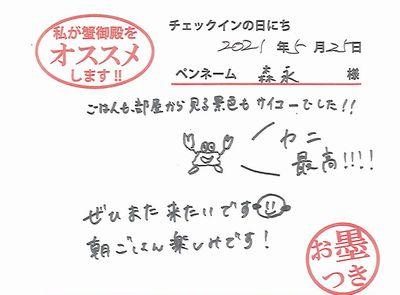 私が蟹御殿を
オススメ
します!!
チェックインの日にち
2021年5月25日
ペンネーム 森永 様
ごはんも、部屋から見る景色もサイコーでした!!
カニ
最高!!!!
ぜひまた来たいです
朝ごはん楽しみです!
お墨
つき